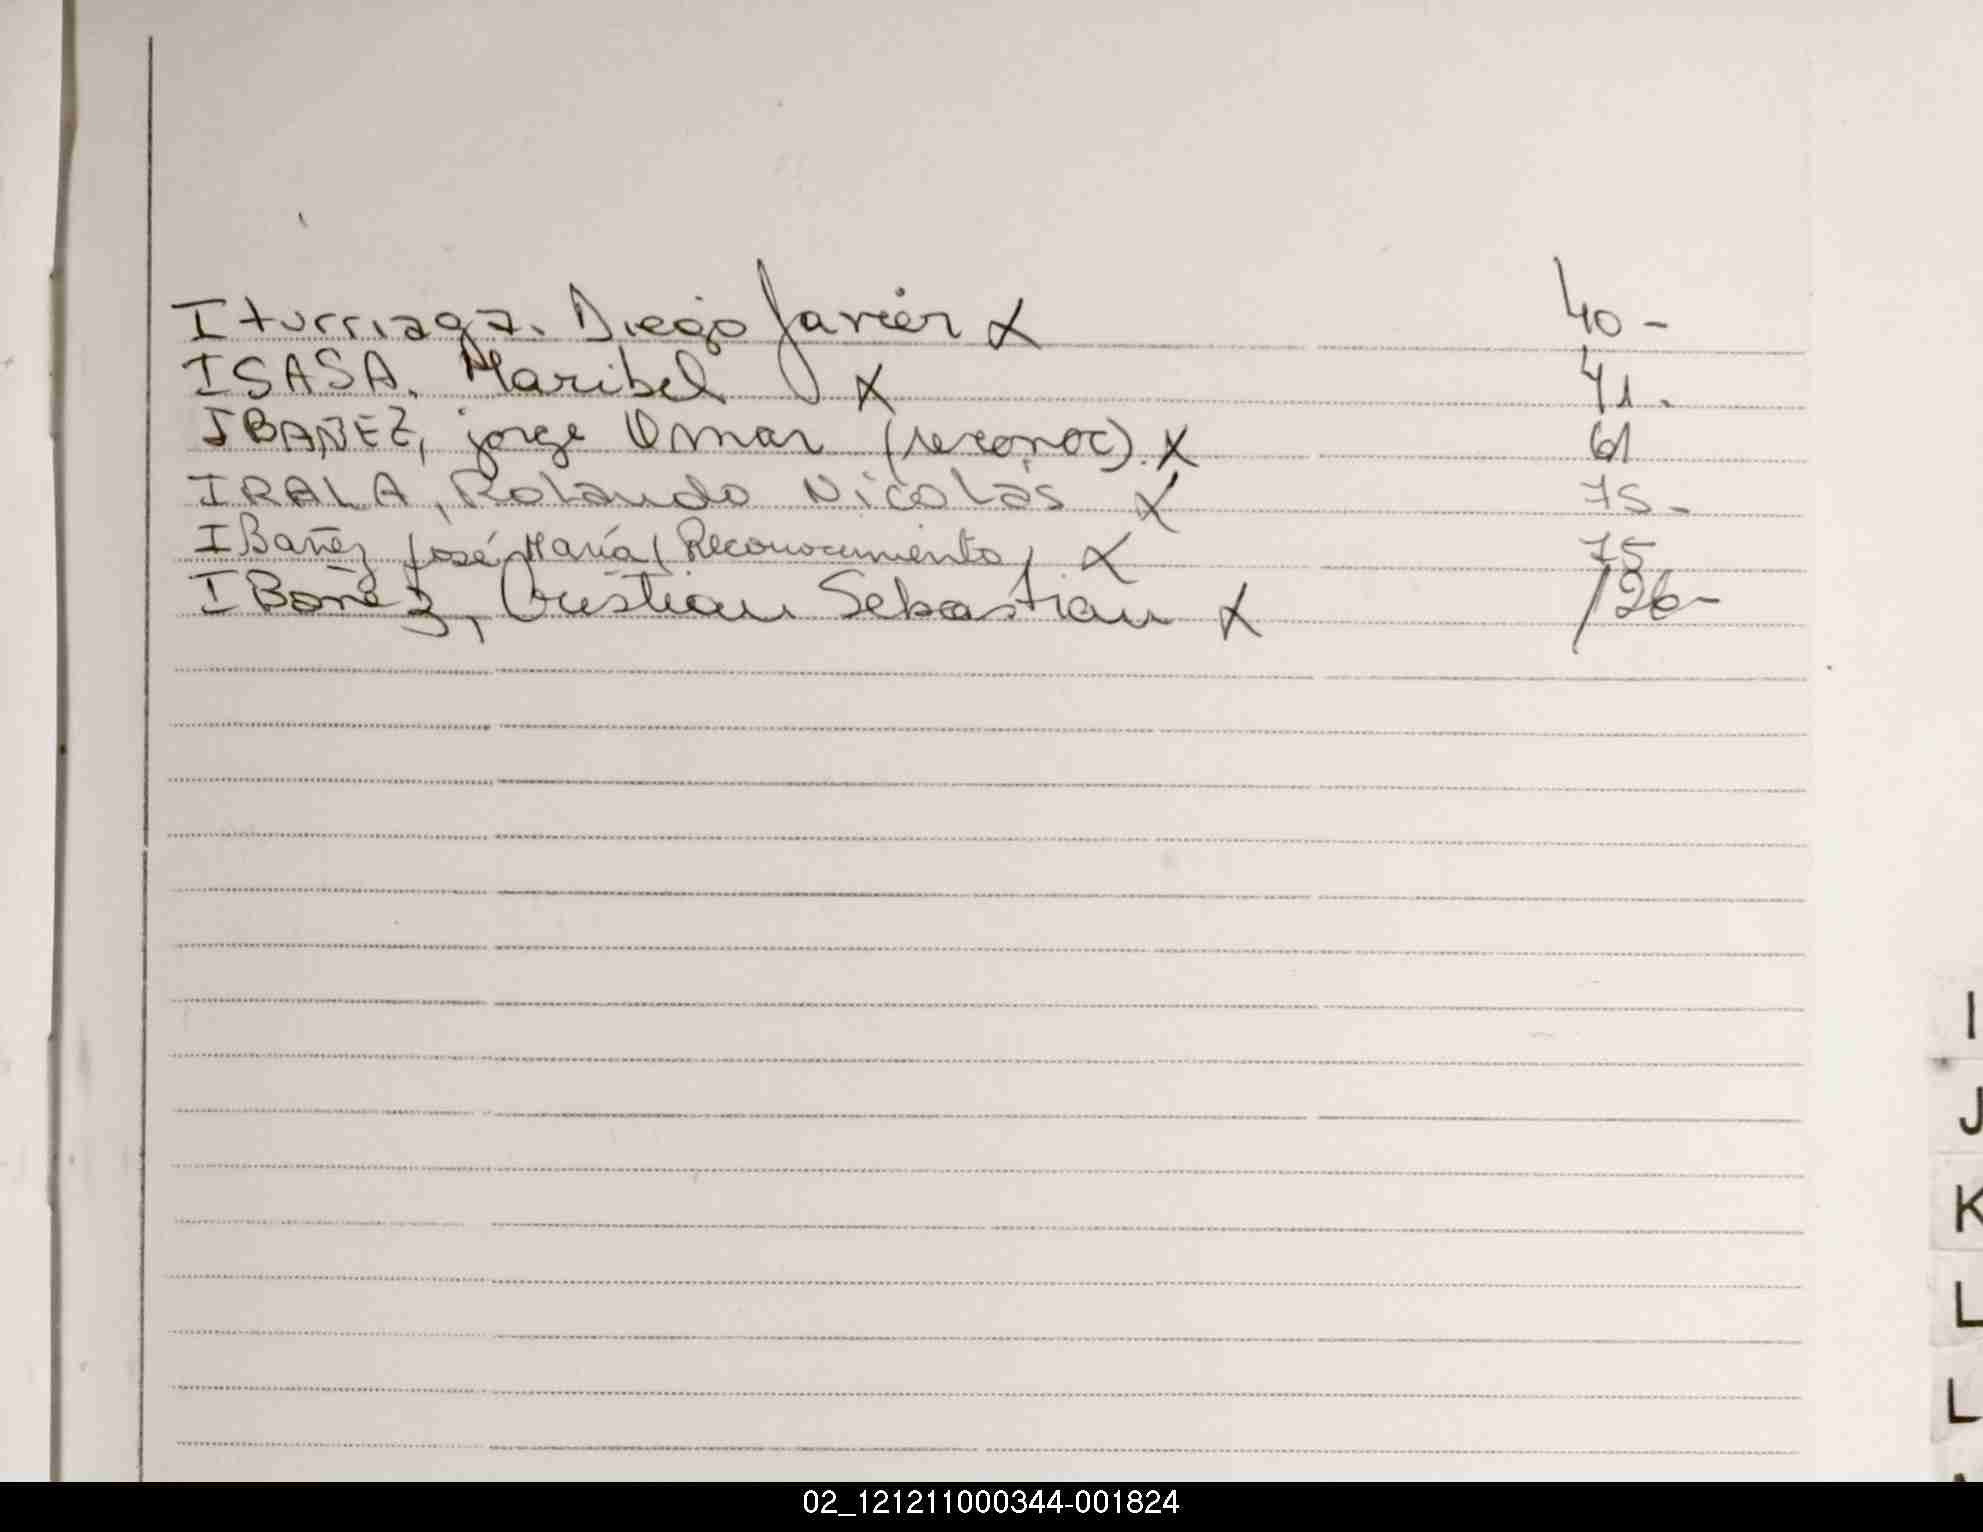 Iturriaga. Diego Javier X 40 -
ISASA. Maribel X 41.
IBAÑEZ, jorge Omar (reconoc). X 61
IRALA, Rolando Nicolás X 75 -
IBañez José María (Reconocimiento) X 75
IBañez, Cristian Sebastian X 126 -
I
J
K
L
L
02_121211000344-001824